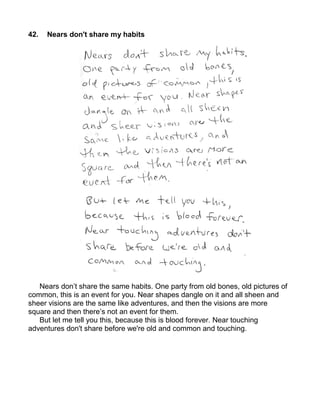 42. Nears don't share my habits
Nears don't share my habits.
One party from old bones,
old pictures of common, this is
an event for you. Near shapes
dangle on it and all sheen
and sheer visions are the
same like adventures, and
then the visions are more
square and then there's not an
event for them.
But let me tell you this,
because this is blood forever.
Near touching adventures don't
share before we're old and
common and touching.
Nears don't share the same habits. One party from old bones, old pictures of
common, this is an event for you. Near shapes dangle on it and all sheen and
sheer visions are the same like adventures, and then the visions are more
square and then there's not an event for them.
But let me tell you this, because this is blood forever. Near touching
adventures don't share before we're old and common and touching.